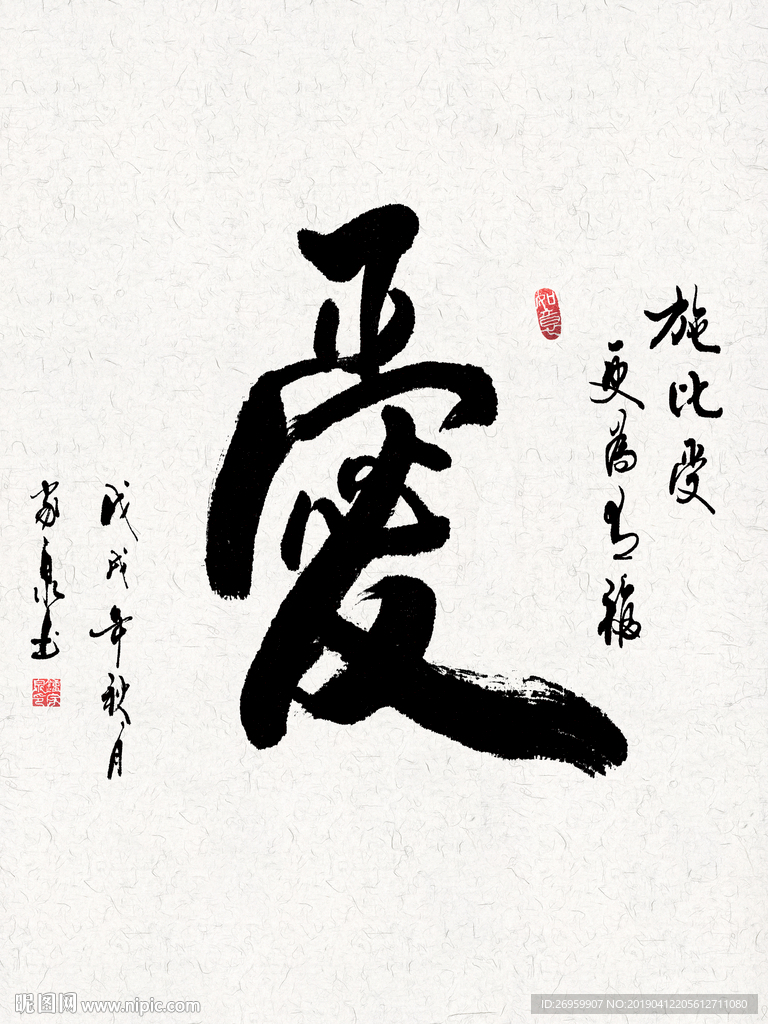 施比受
更為有福
愛
如意
戊戌年秋月
家泉书
昵图网 www.nipic.com
ID:26959907 NO:20190412205612711080